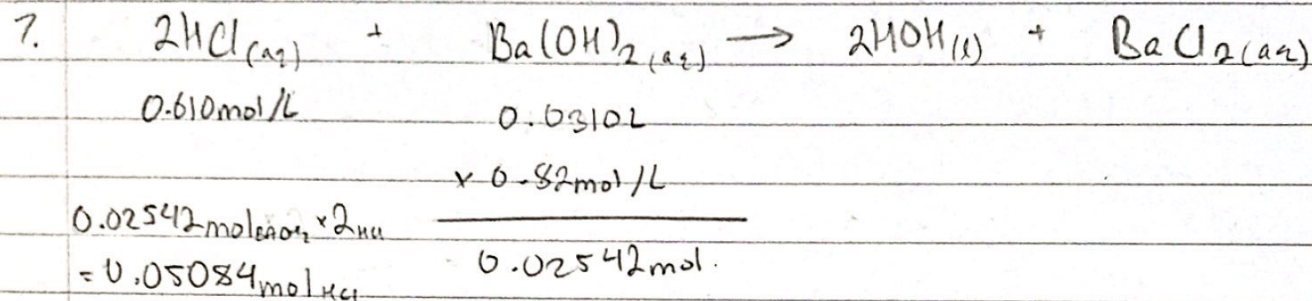 7. 2HCl(aq) + Ba(OH)2(aq) → 2HOH(l) + BaCl2(aq)
0.610mol/L 0.0310L
x 0.82mol/L
0.02542mol x 2HCl
0.02542mol.
=0.05084molHCl